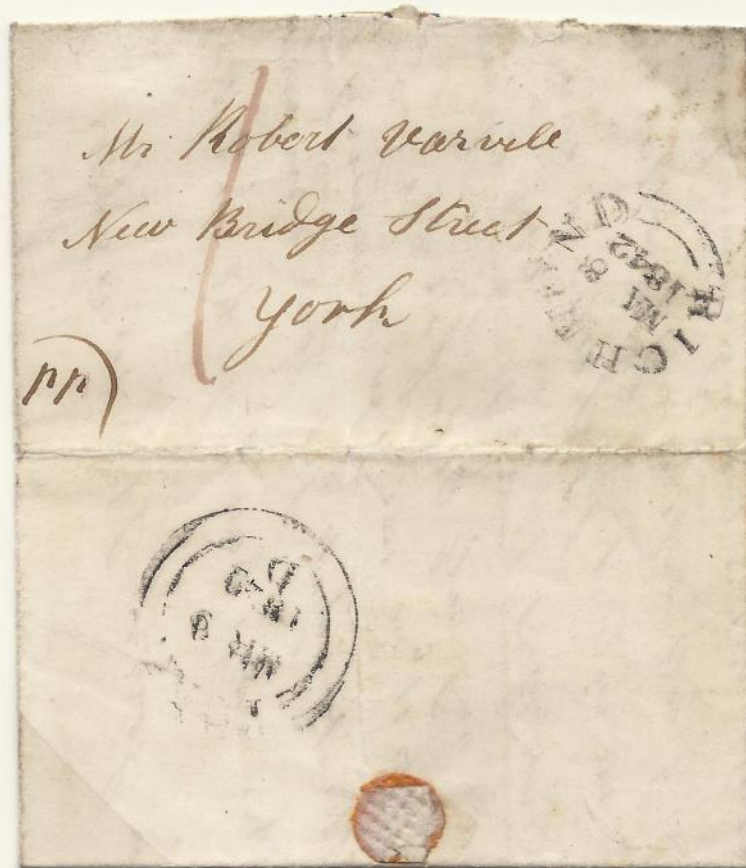 Mr Robert Varvill
New Bridge Street
York
1
pp
RICHMOND
8
1842
MR 9
D